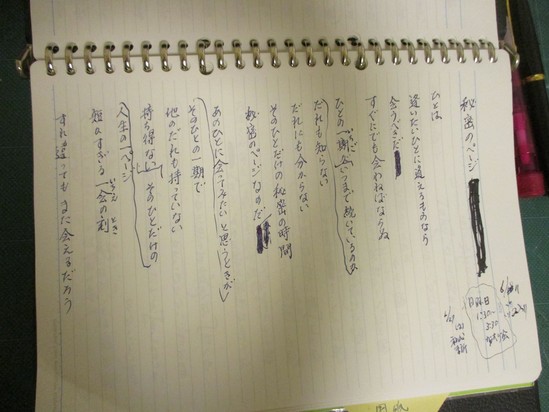 秘密のページ
ひとは
逢いたいひとに逢えるものなら
会うべきだ
すぐにでも会わねばならぬ
ひとの一期がいつまで続いているのか
だれも知らない
だれにも分からない
そのひとだけの秘密の時間
秘密のページなのだ
あのひとに会ってみたいと思うときが
そのひとの一期で
他のだれも持っていない
持ち得ない そのひとだけの
人生の一ページ
短すぎる一会の刻
いちえ とき
すれ違っても また会えるだろう
日曜日
1:30~
3:30
用紙